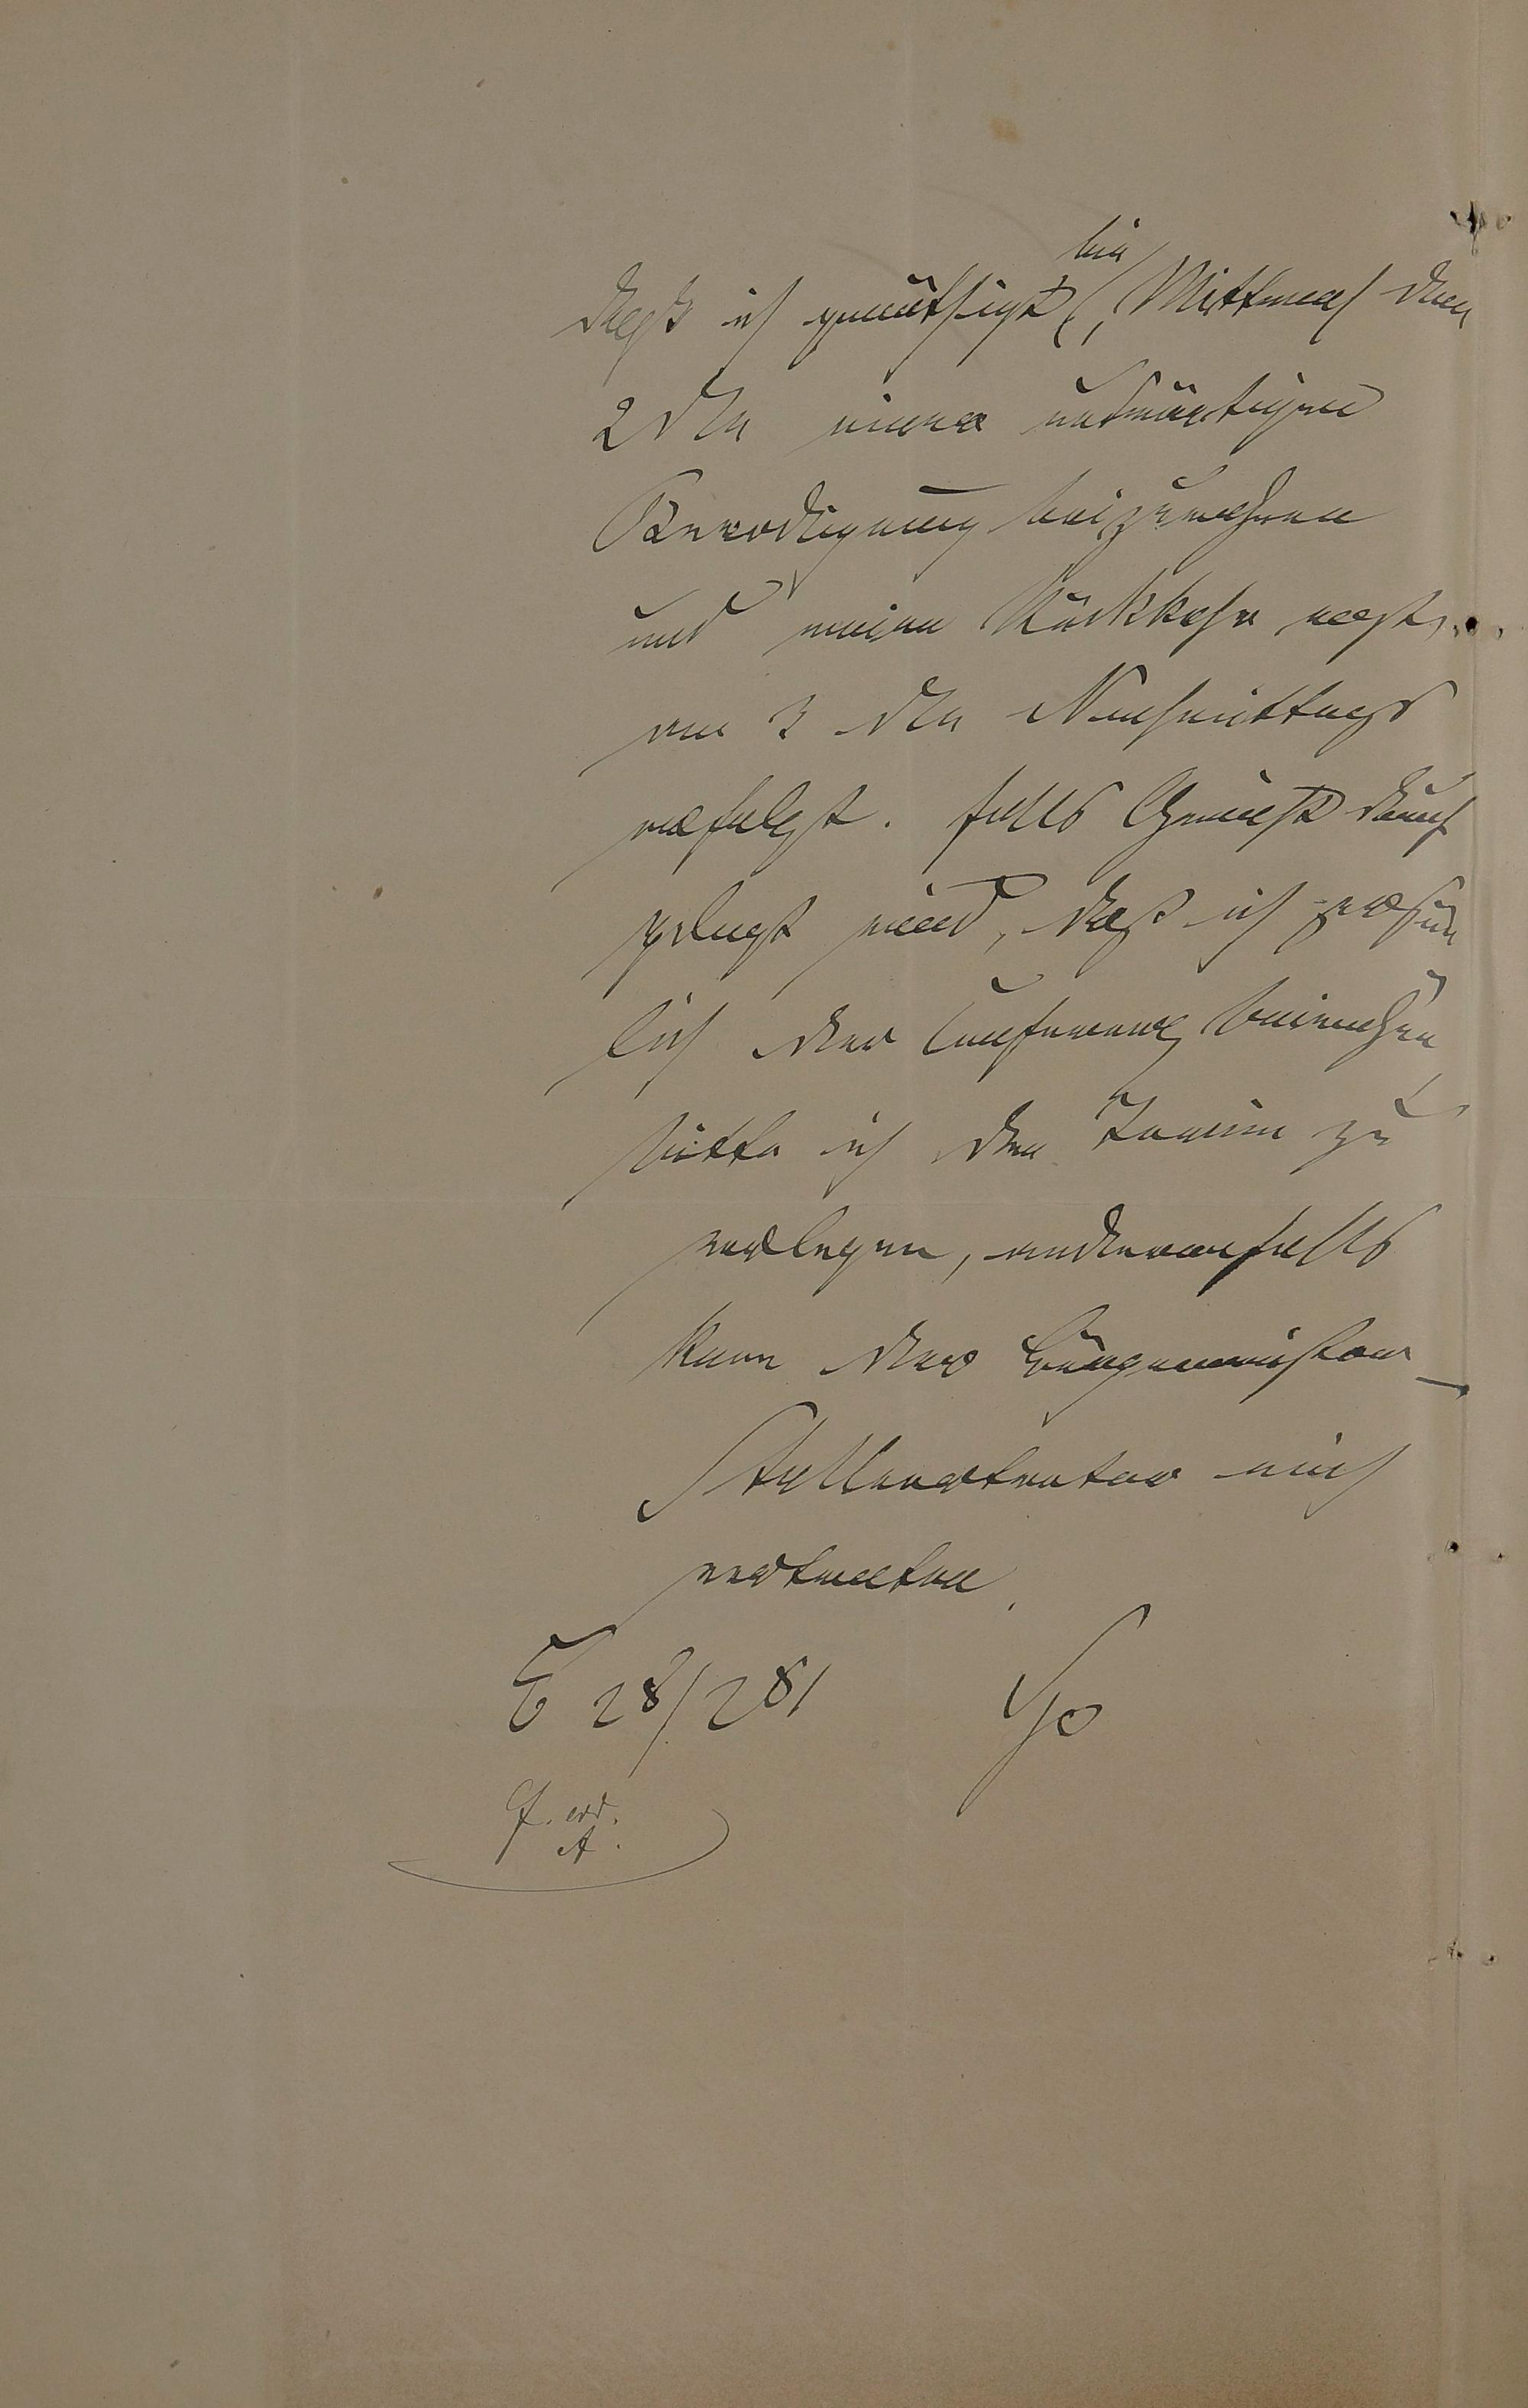 bin
daß ich genöthigt, Mittwoch den
2 ten einer auswärtigen
Beerdigung beizuwohnen
und meine Rückkehr erst
am 3 ten Nachmittags
erfolgt. Falls Gewicht darauf
gelegt wird, daß ich persön
lich der Conferenz beiwohne
bitte ich den Termin zu
verlegen, anderenfalls
kann der Bürgermeister-
Stellvertreter mich
vertreten.
E 28/2 81